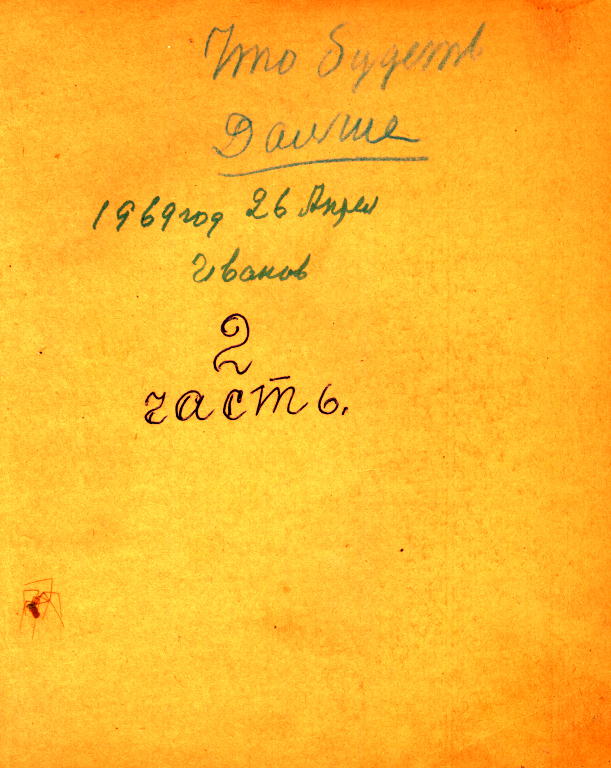 Что будетъ
Далше
1969 год 26 Апрел
Иванов
2
часть.